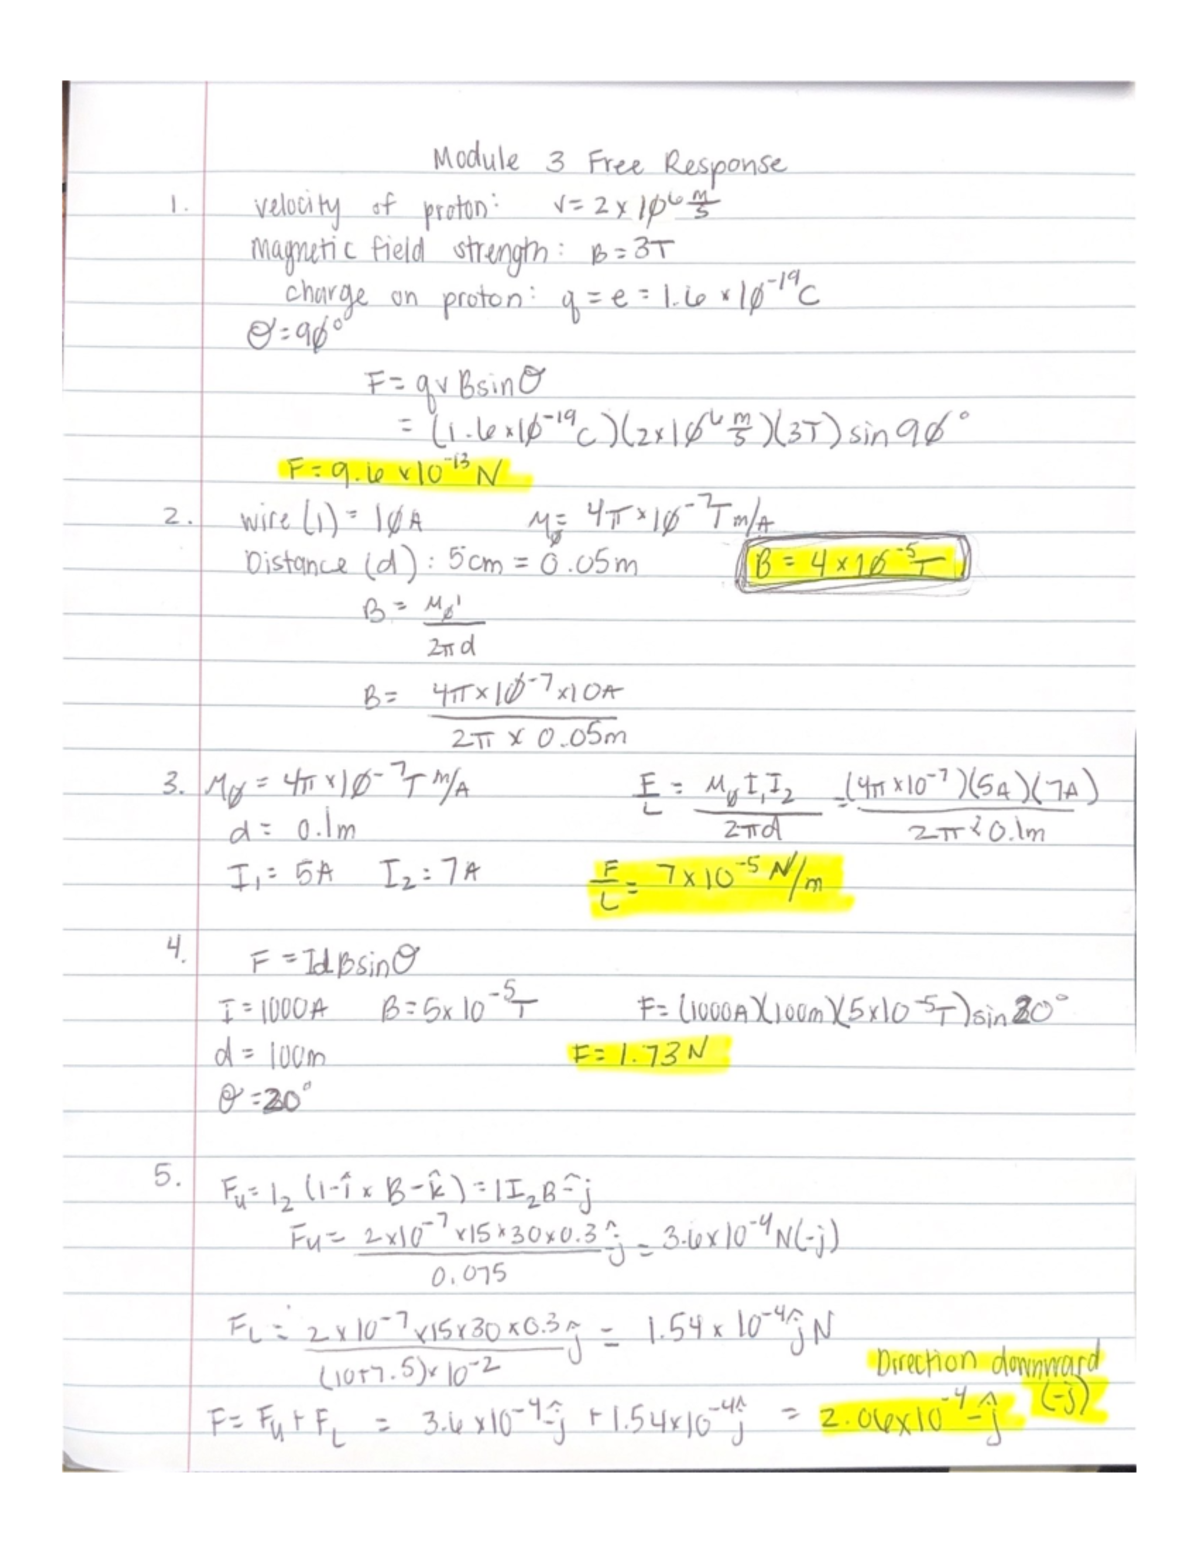 Module 3 Free Response
1. velocity of proton: v = 2 x 10^6 m/s
Magnetic field strength: B = 3T
charge on proton: q = e = 1.6 x 10^-19 C
θ = 90°
F = qvBsinθ
= (1.6x10^-19 C)(2x10^6 m/s)(3T) sin 90°
F = 9.6 x10^-13 N
2. wire (1) = 10A M0 = 4π x 10^-7 T m/A
Distance (d) : 5cm = 0.05m B = 4 x 10^-5 T
B = M0 I / 2π d
B = 4π x 10^-7 x10A / 2π x 0.05m
3. M0 = 4π x10^-7 T m/A F/L = M0 I1 I2 / 2πd = (4π x10^-7)(5A)(7A) / 2π x 0.1m
d = 0.1m
I1 = 5A I2 = 7A F/L = 7 x 10^-5 N/m
4. F = IdBsinθ
I = 1000A B = 5x 10^-5 T F = (1000A)(100m)(5x10^-5 T) sin 20°
d = 100m F = 1.73 N
θ = 20°
5. Fu = I2 (1-î x B-k̂) = 1I2B-ĵ
Fu = 2x10^-7 x15 x 30 x 0.3 / 0.075 -ĵ = 3.6x10^-4 N(-j)
FL = 2 x 10^-7 x15x30 x0.3 / (10+7.5)x 10^-2 ĵ = 1.54 x 10^-4 ĵ N
Direction downward
F = Fu + FL = 3.6 x10^-4 -ĵ + 1.54x10^-4 ĵ = 2.06x10^-4 -ĵ (-j)